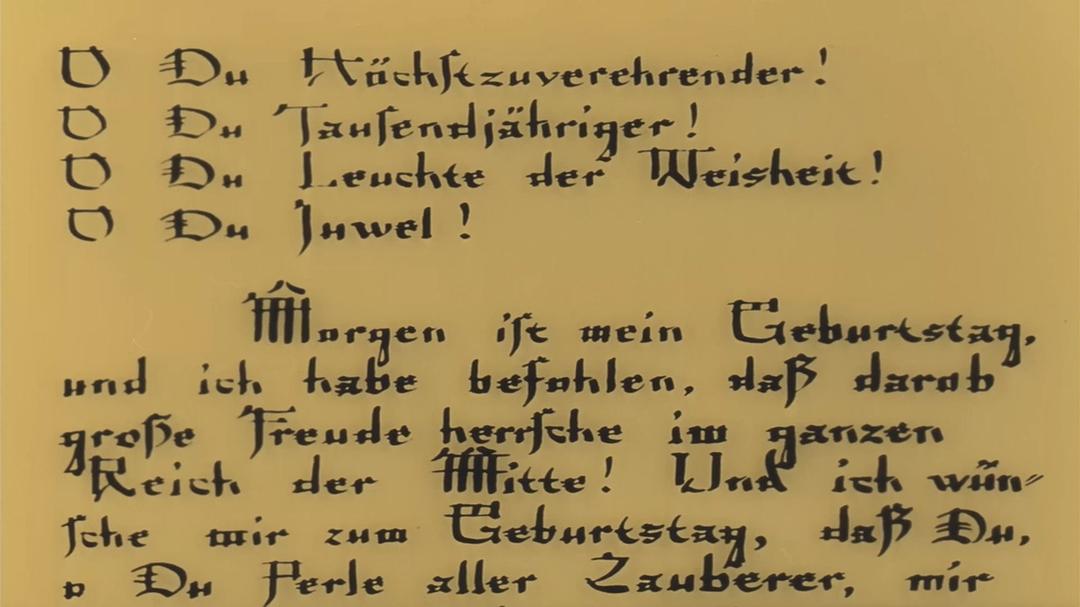 O Du Höchſtzuverehrender!
O Du Tauſendjähriger!
O Du Leuchte der Weisheit!
O Du Juwel!
Morgen iſt mein Geburtstag,
und ich habe befohlen, daß darob
große Freude herrſche im ganzen
Reich der Mitte! Und ich wün-
ſche mir zum Geburtstag, daß Du,
o Du Perle aller Zauberer, mir